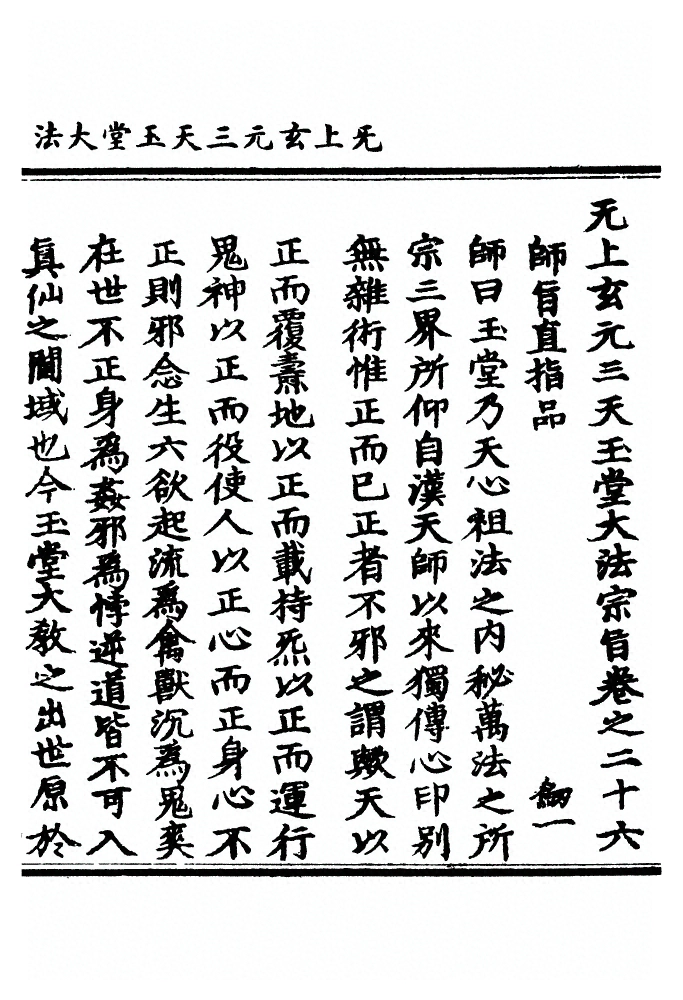 无上玄元三天玉堂大法
无上玄元三天玉堂大法宗旨卷之二十六
師旨直指品 劒一
師曰玉堂乃天心祖法之内秘萬法之所
宗三界所仰自漢天師以來獨傳心印别
無雜術惟正而已正者不邪之謂歟天以
正而覆燾地以正而載持炁以正而運行
鬼神以正而役使人以正心而正身心不
正則邪念生六欲起流爲禽獸沉爲鬼爽
在世不正身爲姦邪爲悖逆道皆不可入
真仙之閫域也今玉堂大教之出世原於